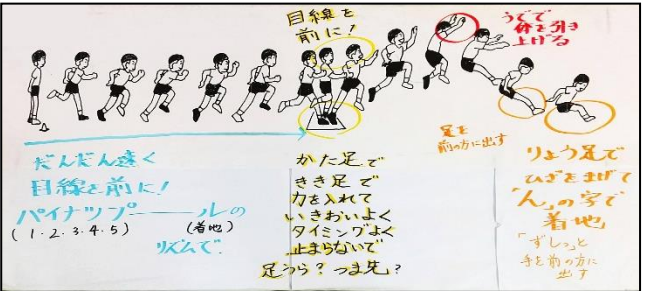 目線を
前に!
うでで
体を引き
上げる
足を
前の方に出す
だんだん速く
目線を前に!
パイナップ――ルの
(1・2・3・4・5) (着地)
リズムで
かた足で
きき足で
力を入れて
いきおいよく
タイミングよく
止まらないで
足うら?つま先?
りょう足で
ひざをまげて
「ん」の字で
着地
「ずしっ」と
手を前の方に
出す